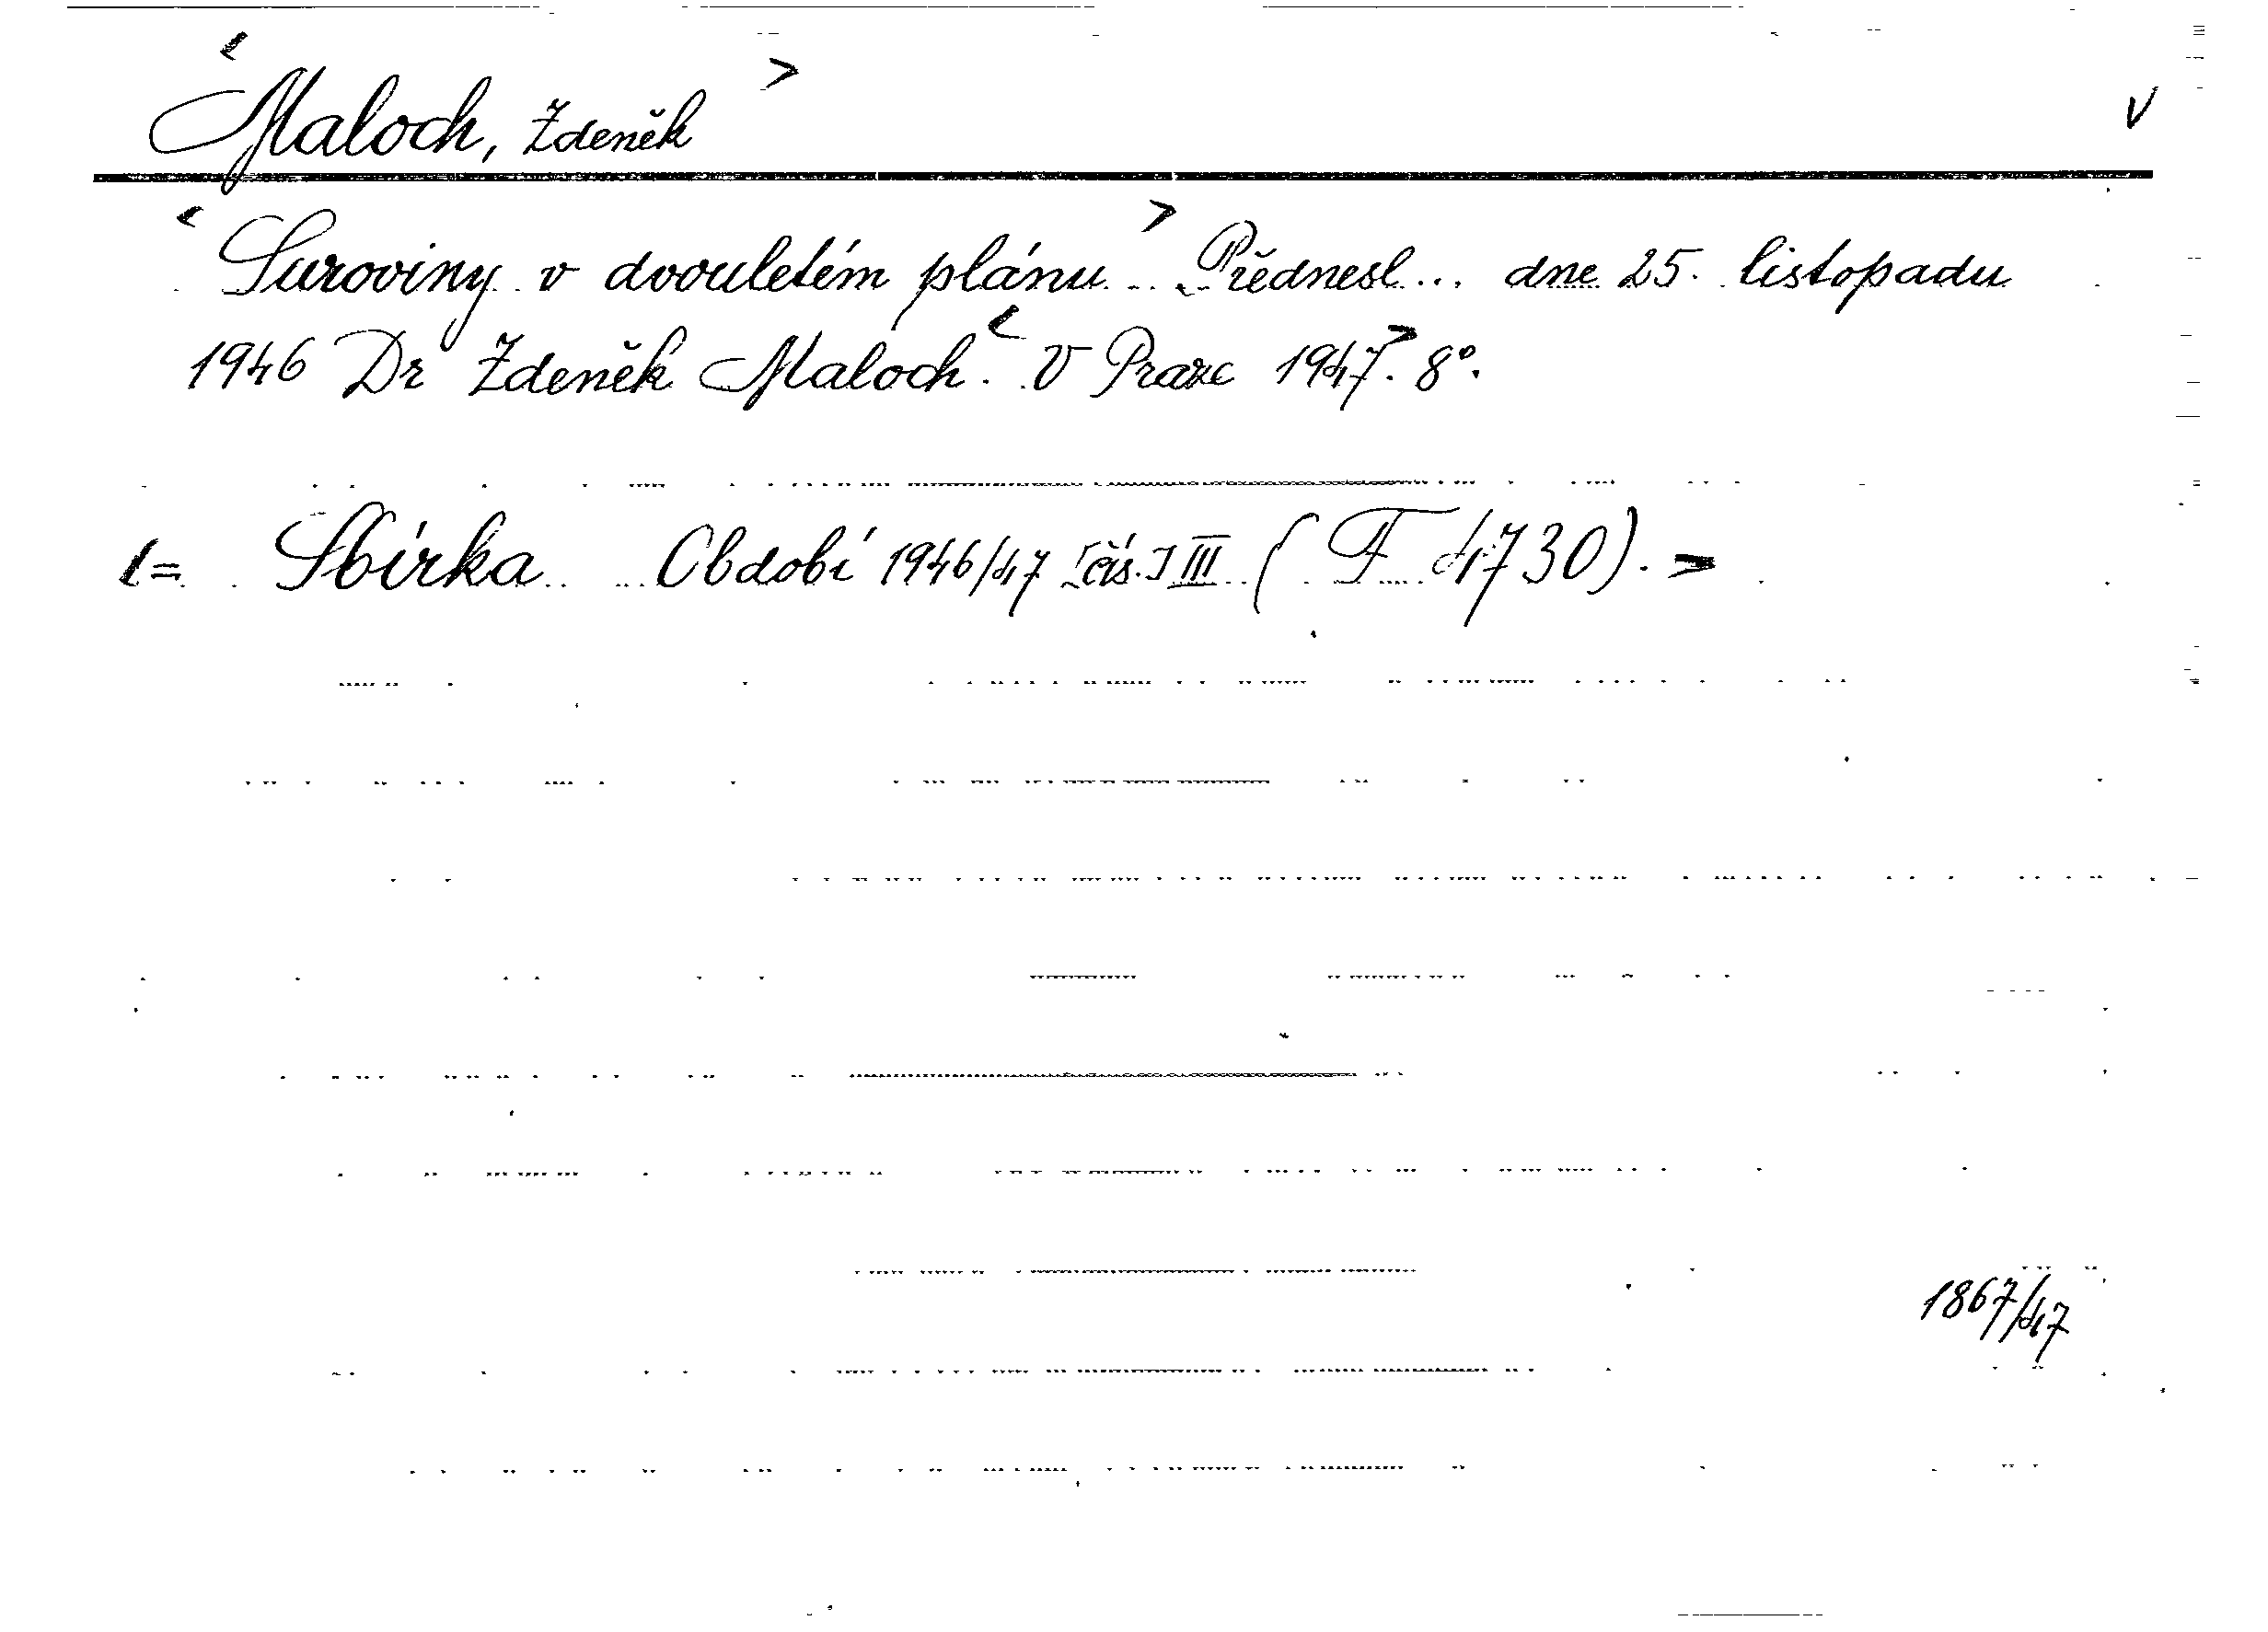 < Maloch, Zdeněk > V
< Suroviny v dvouletém plánu. > Přednesl... dne 25. listopadu
1946 Dr Zdeněk Maloch. < V Praze 1947. > 8°.
<= Sbírka Období 1946/47 [čís.] III ( F 4730). >
1867/47